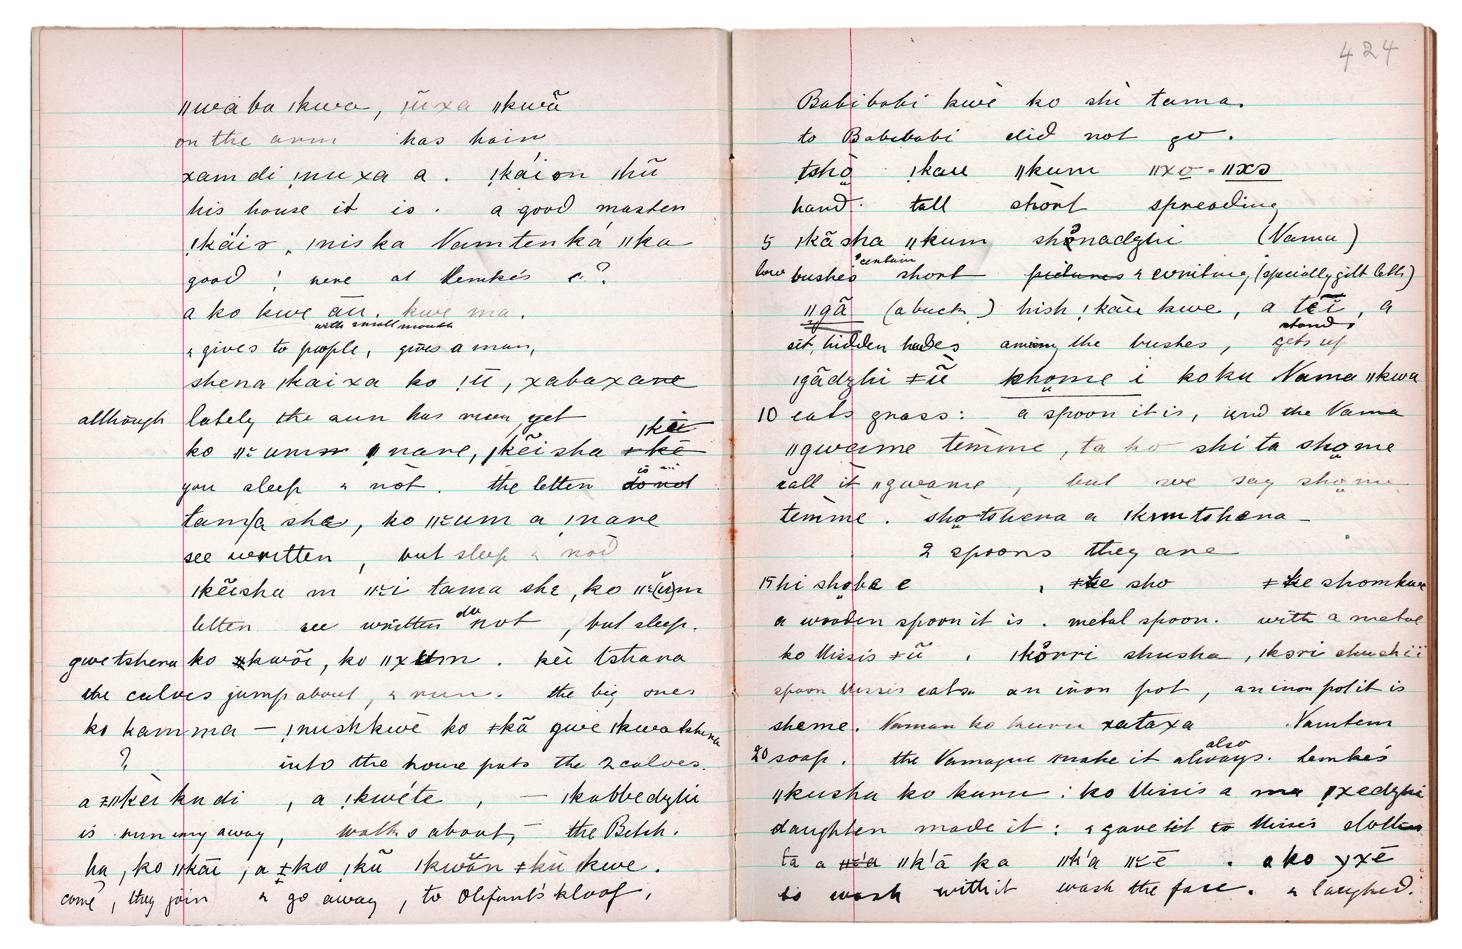 ǁwaba ǀkwa, ǀũxa ǁkwã
on the arm has hair
xam di ǃnu xa a. ǃkái on ǀhũ
his house it is. a good master
ǃkäis, ǀnis ka Namtenká ǁka
good ! were at Lemkés e?
a ko kwe āu, kwe ma.
with small mouth
& gives to people, gives a man,
shena ǀkaixa ko ǃū, xabaxare
although lately the sun has risen, yet
ǀkei
ko ǁum nare, ǀkẽisha
you sleep & not. the letter do not
tama she, ko ǁum a ǀnare
see written, but sleep & nod
ǀkẽisha m ǁi tama she, ko ǁum
do
letter see written not, but sleep.
gwetshena ko ǂkwõi, ko ǁxum. kèi tshana
the calves jump about, & run. the big ones
ko hamma — ǃnushkwè ko ǂkã gwe ǀkwa tshena
? into the house puts the 2 calves.
kudi, a ǃkwéte, — ǀkabbedzhi
is running away, walks about, — the Bitch.
ha, ko ǁkãi, a ǂko ǀkũ ǀkwõn ǂkũ ǀkwe.
come, they join & go away, to Olifant's kloof,
424
Babibabi kwè ko shi tama.
to Babibabi did not go.
tshò ǃkau ǁkum ǁxo = ǁxo
hand. tall short spreading
5 ǀkãsha ǁkum shònadzhi (Nama)
certain
low bushes short pictures & writing, (specially gilt letts)
ǁgã (a buck) hish ǃkãu kwe, a tẽĩ, a
stand,
sit, hidden hides among the bushes, gets up
ǀgãdzhi ǂũ khome i koku Nama ǁkwa
10 eats grass: a spoon it is, und the Nama
ǁgwame temme, ta ko shi ta shome
call it ǁgwame, but we say shome
temme. sho tshena a ǀkum tshena —
2 spoons they are
15 hi shobe e, ǂke sho ǂke shomkwa
a wooden spoon it is. metal spoon. with a metal
ko Missis ǂũ. ǀkõrri shusha, ǀkori shushii
spoon Missis eats. an iron pot, an iron pot it is
sheme. Naman ko kuru xataxa Namtem
also
20 soap. the Namaqua make it always. Lemkés
ǁkusha ko kuru: ko Missis a ma ǀxedzhi
daughter made it: & gave it to Missis clothes
ta a ǁk'ã ka ǁk'a ǁẽ. a ko yxẽ
to wash with it wash the face. & laughed.